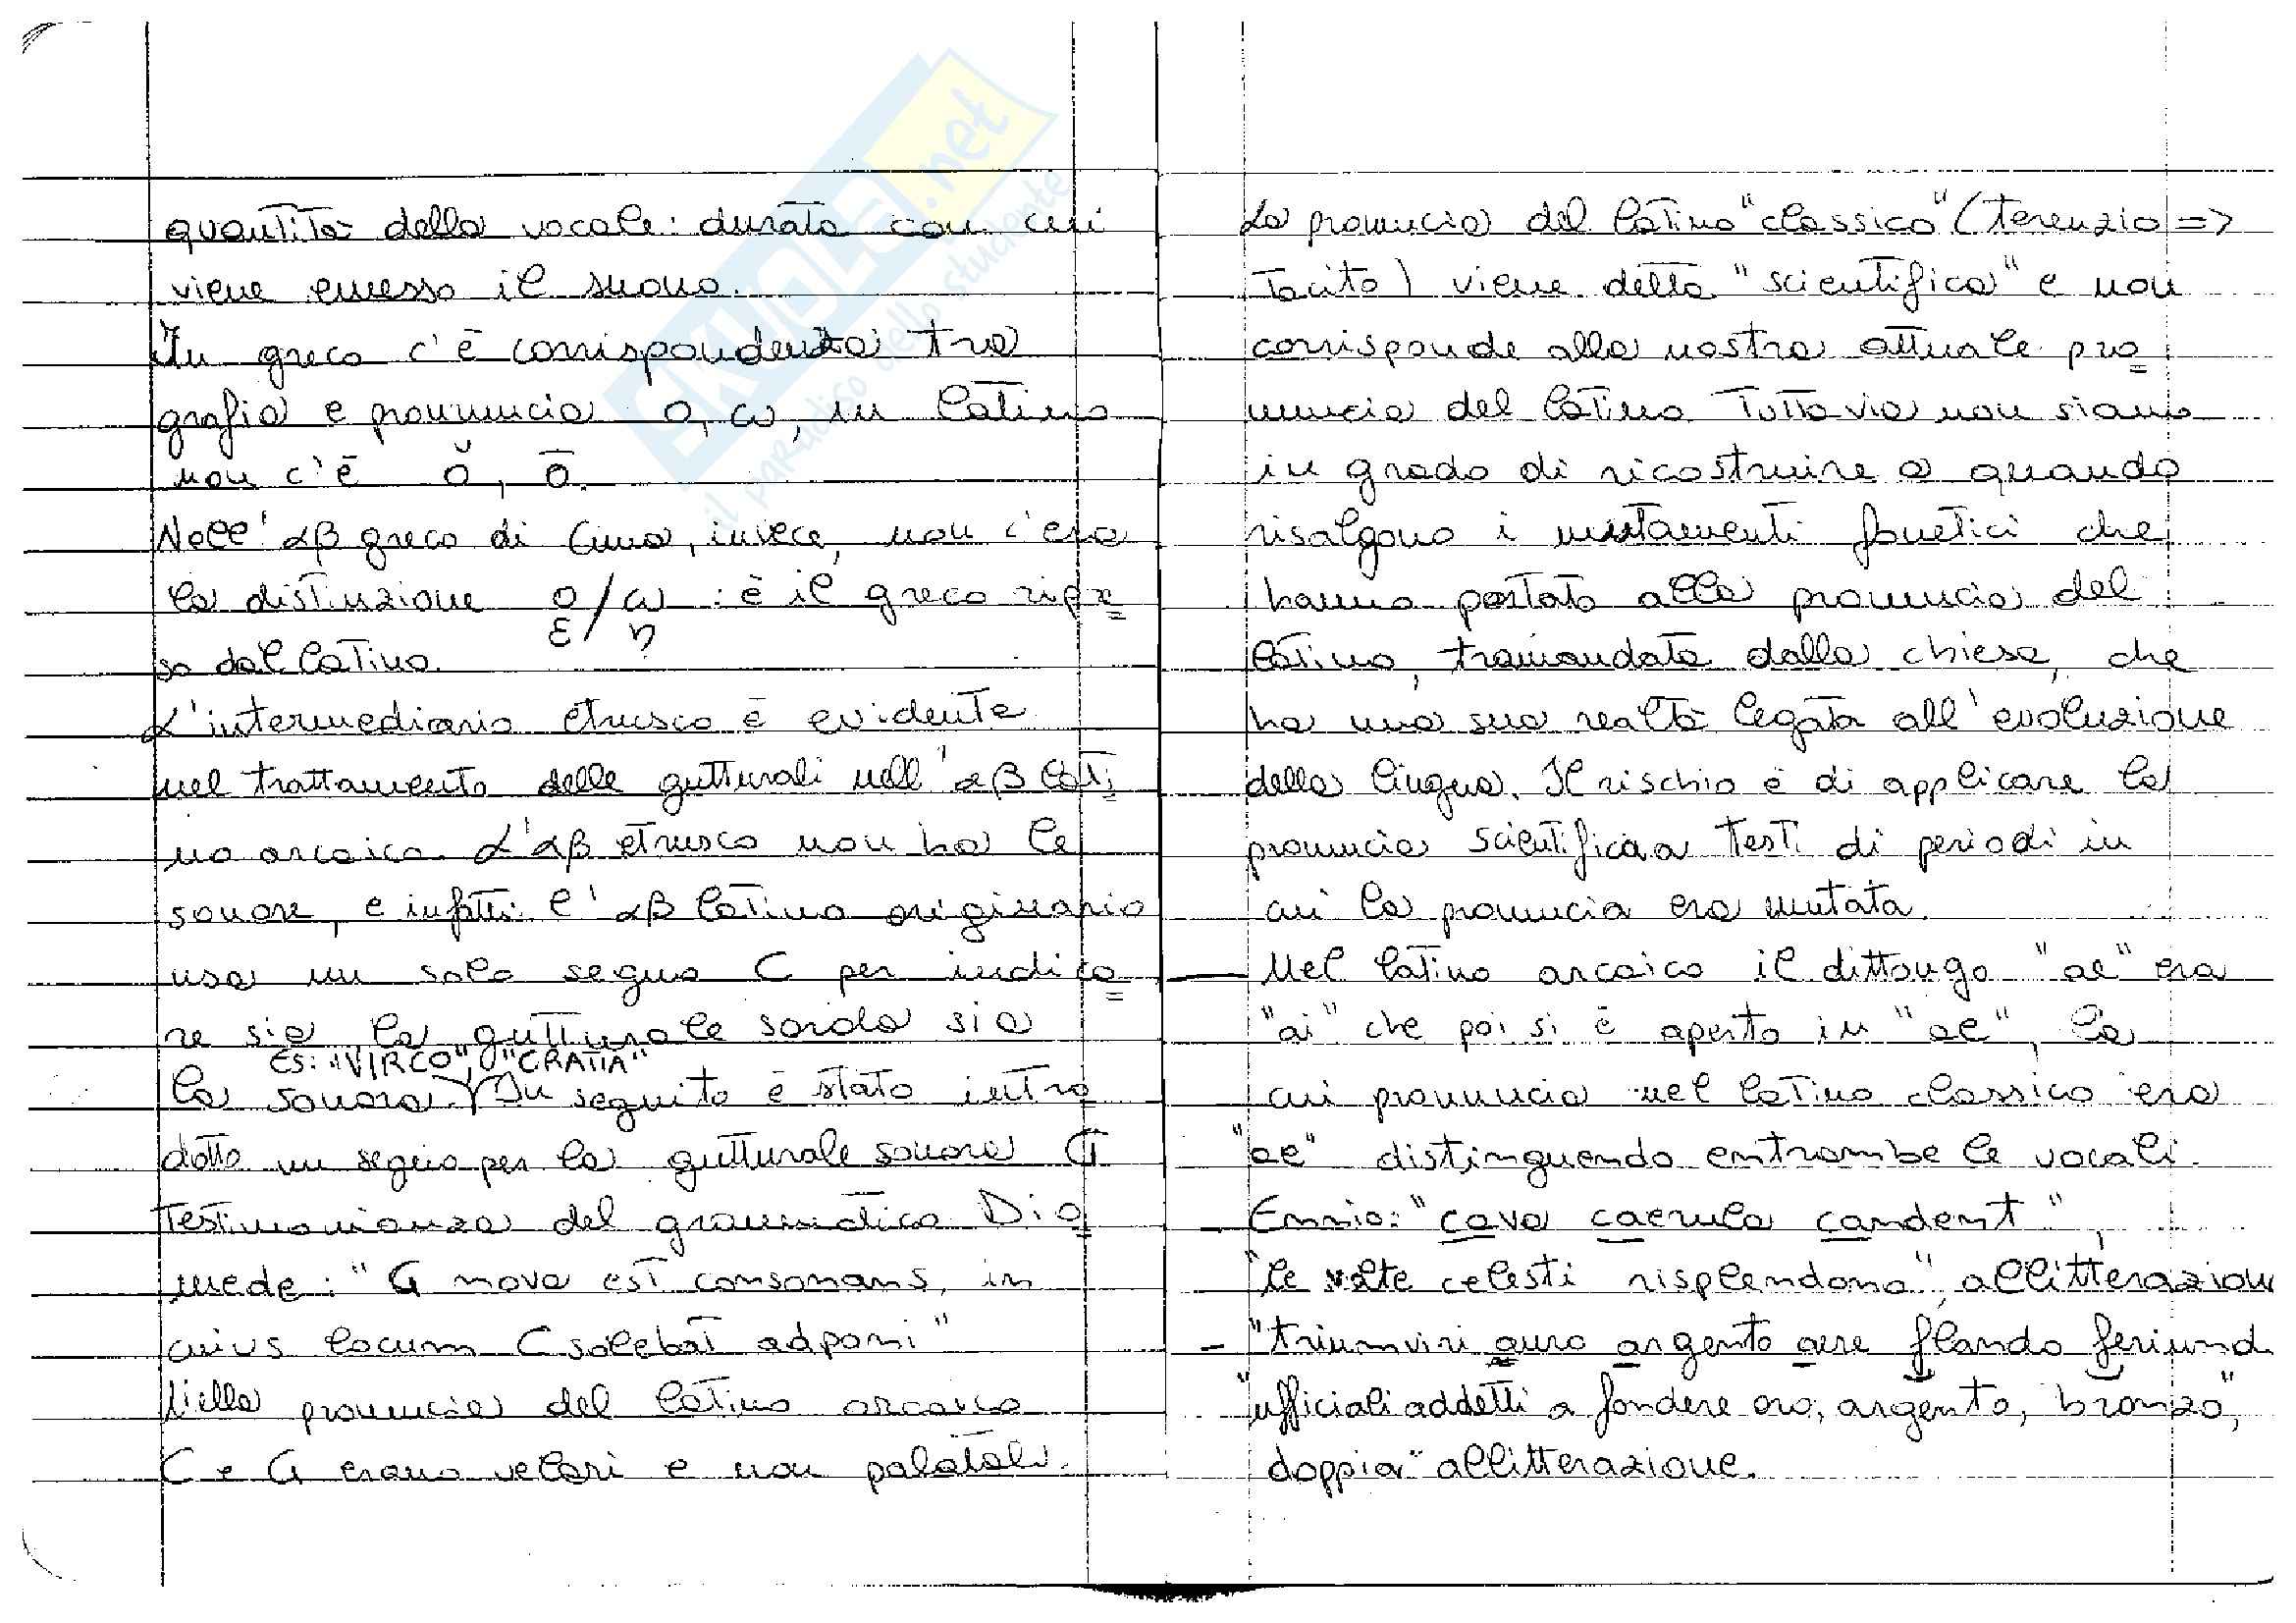 quantità della vocale: durata con cui
viene emesso il suono.
In greco c'è corrispondenza tra
grafia e pronuncia o, ω, in latino
non c'è ŏ, ō.
Nell'αβ greco di Cuma, invece, non c'era
la distinzione o/ω : è il greco ripre
ε/η
so dal latino.
L'intermediario etrusco è evidente
nel trattamento delle gutturali nell'αβ lati
no arcaico. L'αβ etrusco non ha le
sonore, e infatti l'αβ latino originario
usa un solo segno C per indica
re sia la gutturale sorda sia
ES: "VIRCO", "CRATIA"
la sonora. In seguito è stato intro
dotto un segno per la gutturale sonora G
Testimonianza del grammatico Dio
mede: "G nova est consonans, in
cuius locum C solebat adponi"
Nella pronuncia del latino arcaico
C e G erano velari e non palatali.
La pronuncia del latino "classico" (terenzio =>
Tacito) viene detta "scientifica" e non
corrisponde alla nostra attuale pro
nuncia del latino. Tuttavia non siamo
in grado di ricostruire a quando
risalgono i mutamenti fonetici che
hanno portato alla pronuncia del
latino, tramandata dalla chiesa, che
ha una sua realtà legata all'evoluzione
della lingua. Il rischio è di applicare la
pronuncia scientifica a testi di periodi in
cui la pronuncia era mutata.
- Nel latino arcaico il dittongo "ae" era
"ai" che poi si è aperto in "ae", la
cui pronuncia nel latino classico era
"ae" distinguendo entrambe le vocali.
- Ennio: "cava caerula candent",
"le volte celesti risplendono", allitterazione
- "triumviri auro argento aere flando feriund
"ufficiali addetti a fondere oro, argento, bronzo",
doppia allitterazione.
SKUOLA.net
il paradiso dello studente